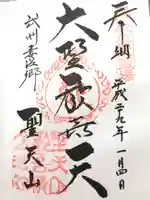 奉納
平成二十九年一月四日
大聖歓喜天
武州妻沼郷
聖天山